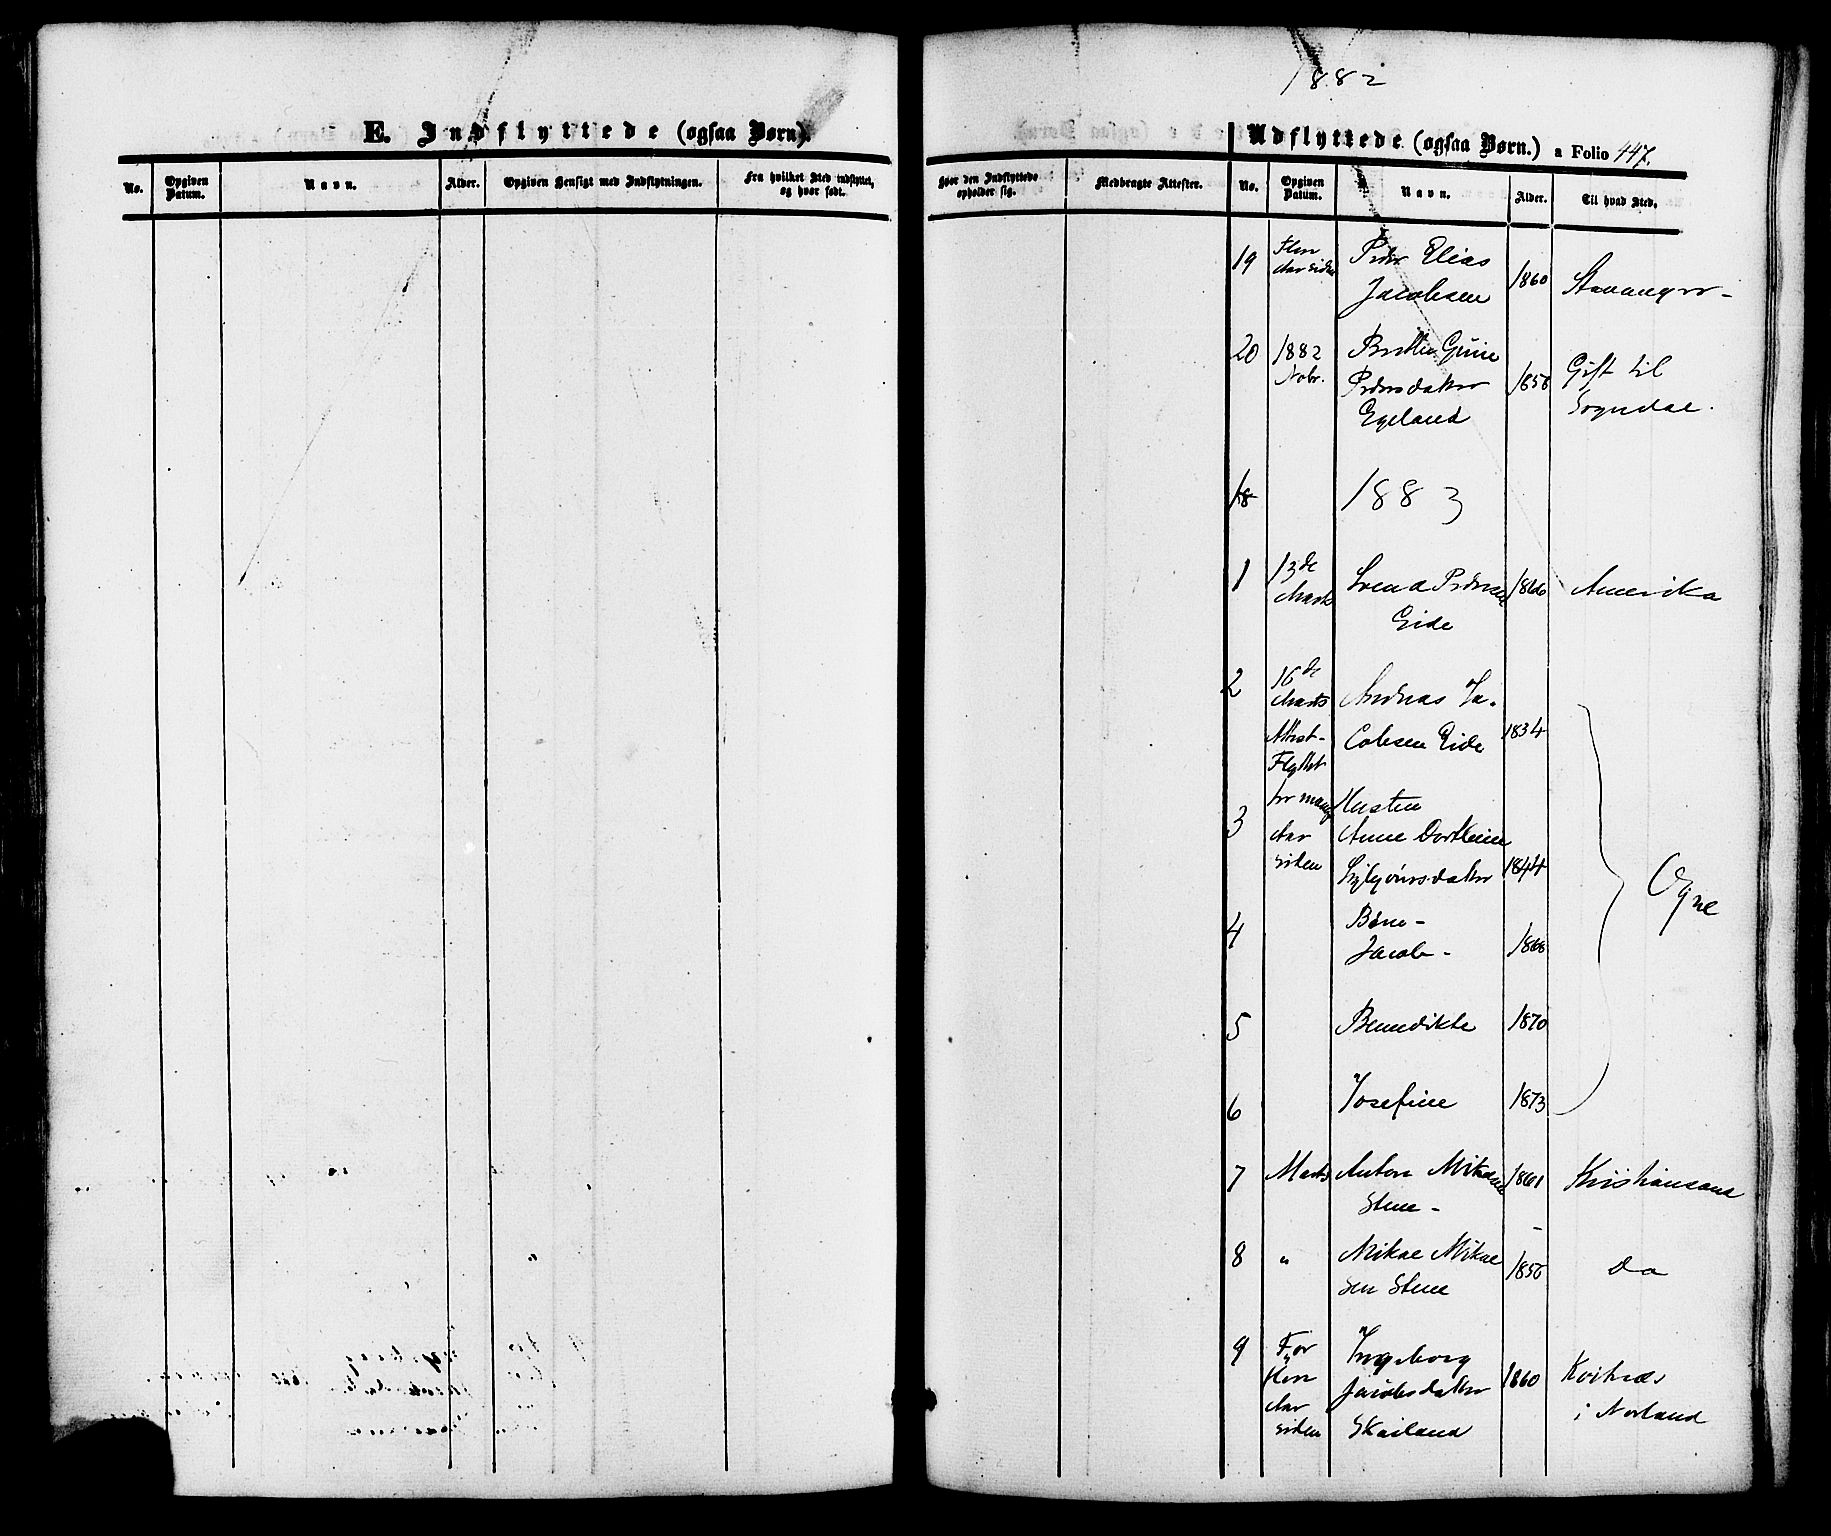 E. Indflyttede (ogsaa Børn).
No.
Opgiven Datum.
Navn.
Alder.
Opgiven Hensigt med Indflytningen.
Fra hvilket Sted indflyttet, og hvor født.
1882
Udflyttede (ogsaa Børn.) a Folio 447.
Hvor den Indflyttede opholder sig.
Medbragte Attester.
No.
Opgiven Datum.
Navn.
Alder.
Til hvad Sted.
19 Flere Peder Elias
Aar siden Jacobsen 1860 Stavanger -
20 1882
Nobr. Pedersdatter 1858 Gift til
Egeland Sogndal.
18 1883
1 13de Svend Pedersen 1860 Amerika
Marts Eide
2 16de
Marts Andreas Ja-
Attest- cobsen Eide 1834
Flyttet
for mange Husten
3 Aar Anne Dorthine
siden 1844 Ogne
4 Børn -
Jacob - 1868
5 Benedikte 1870
6 Josefine 1873
7 Marts Anton 1861 Kristiansand
Stene -
8 " Mikal Mikal
sen Stene 1858 do
9 For Ingeborg
flere Jacobsdatter 1860
Aar i Norland
siden Skailand